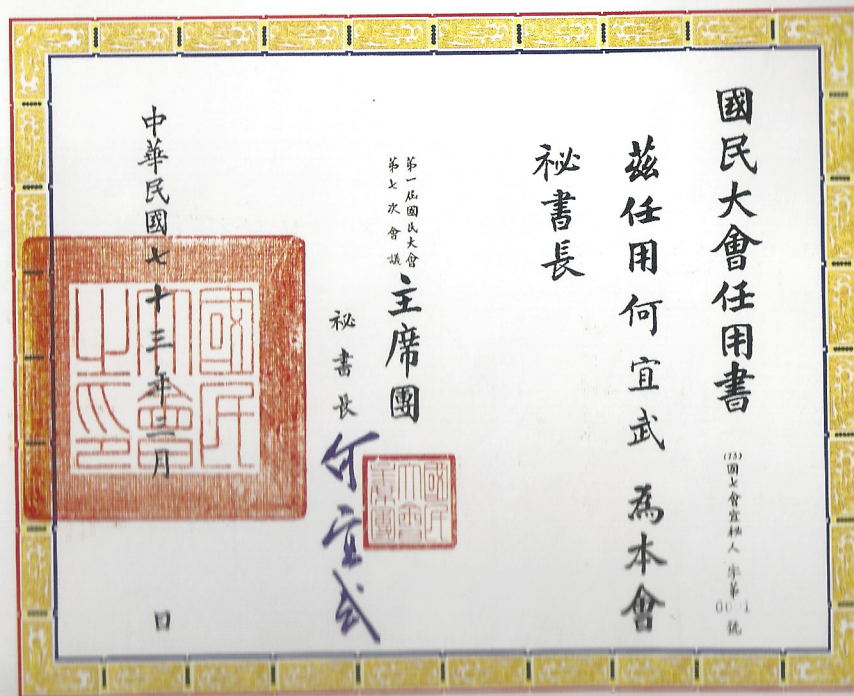 國民大會任用書
(73)國七會宣秘人 字第 號
茲任用何宜武為本會
秘書長
第一屆國民大會
第七次會議
主席團
秘書長
何宜武
國民大會主席團
中華民國七十三年三月 日
國民大會之印